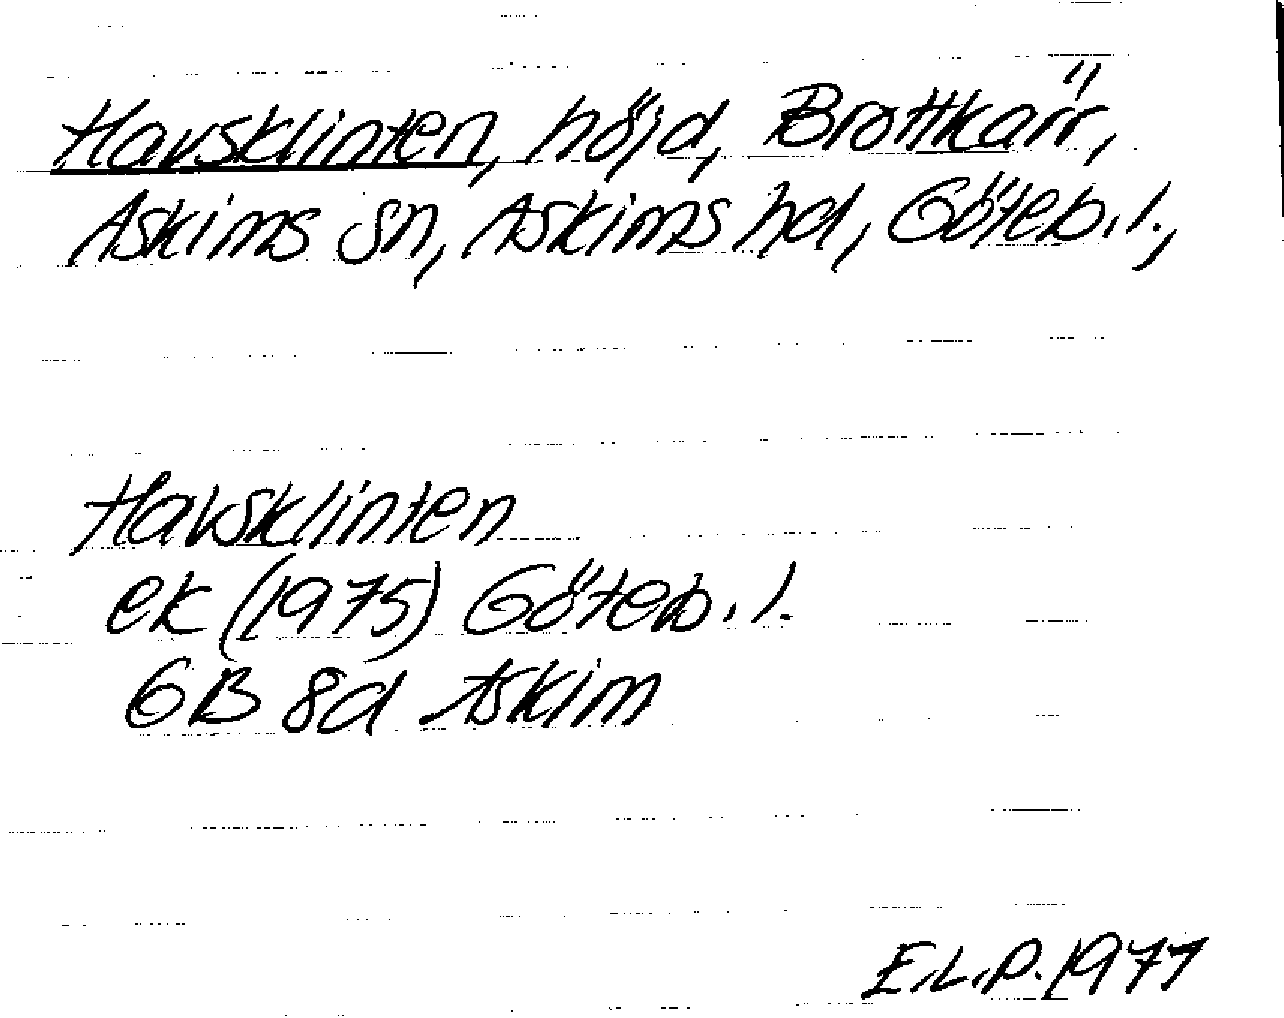 Havsklinten, höjd, Brottkärr,
Askims sn, Askims hd, Göteb. l.,
Havsklinten
ek (1975) Göteb. l.
6B 8d Askim
E.L.P. 1977